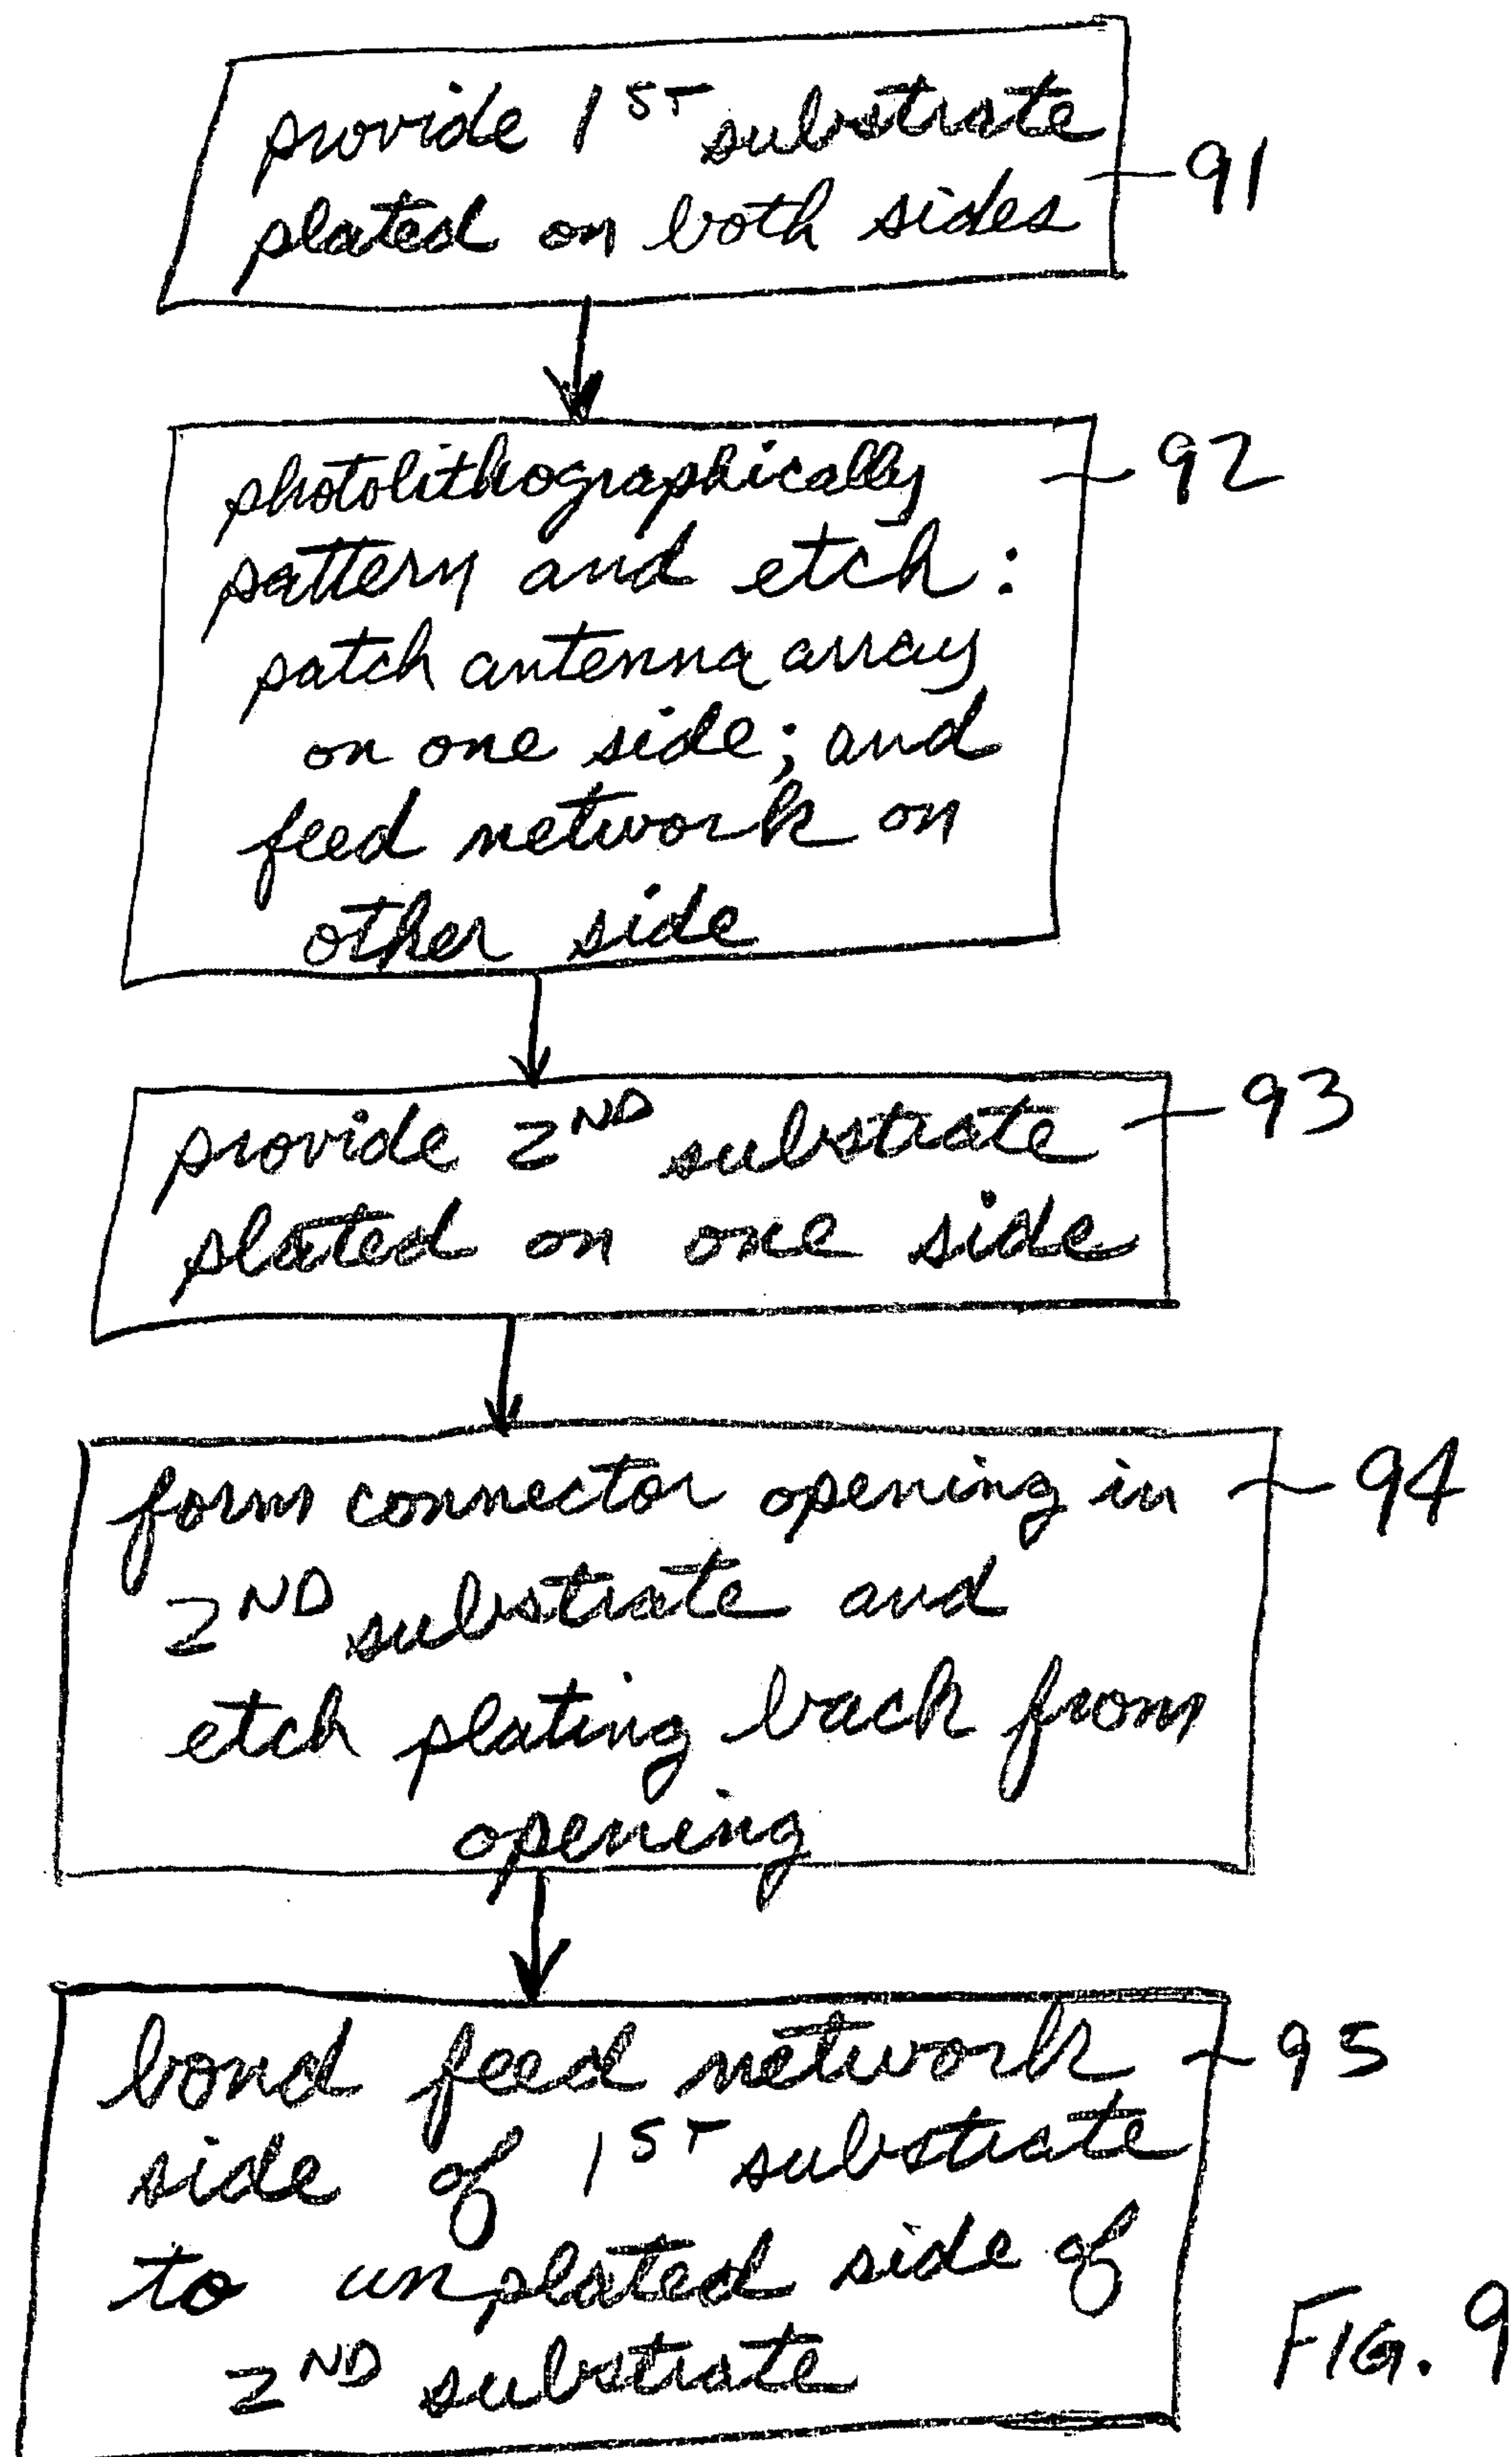 provide 1ST substrate
plated on both sides
91
photolithographically
pattern and etch:
patch antenna array
on one side; and
feed network on
other side
92
provide 2ND substrate
plated on one side
93
form connector opening in
2ND substrate and
etch plating back from
opening
94
bond feed network
side of 1ST substrate
to unplated side of
2ND substrate
95
FIG. 9